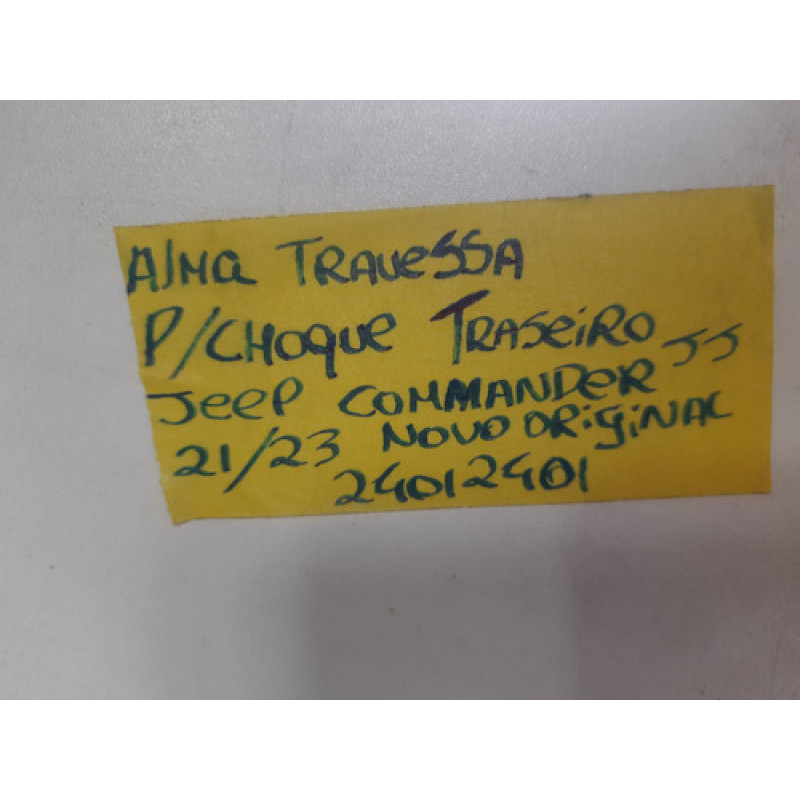 Alma TRAVeSSA
P/CHOQUE TRASeiRO JJ
Jeep COMMANDER
21/23 NOVO ORiGiNAL
24012401